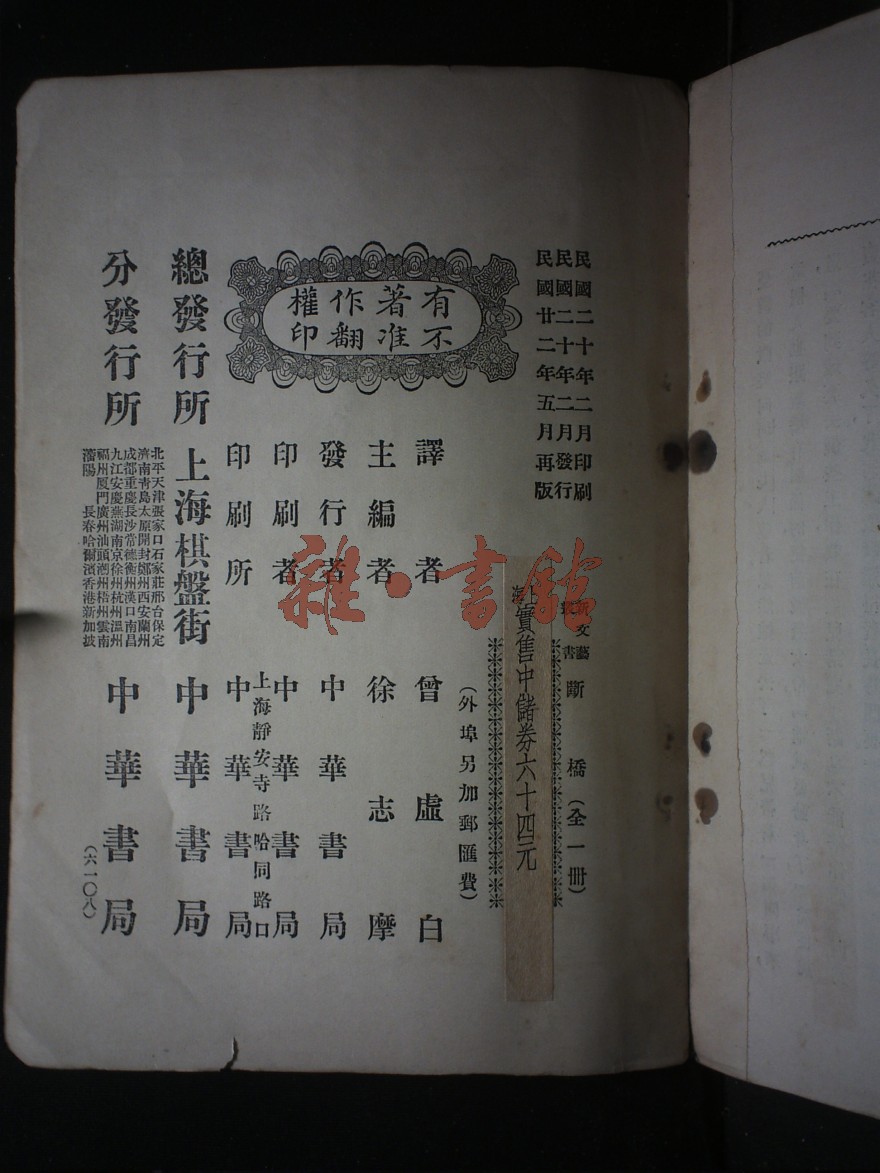 民國二十年二月印刷
民國二十年二月發行
民國廿二年五月再版
新文藝叢書
斷橋（全一冊）
實售中儲券六十四元
（外埠另加郵匯費）
有著作權
不准翻印
譯者 曾虛白
主編者 徐志摩
發行者 中華書局
印刷者 中華書局
上海靜安寺路哈同路口
印刷所 中華書局
總發行所 上海棋盤街 中華書局
分發行所
北平天津張家口石家莊邢台保定
濟南青島太原開封鄭州西安蘭州
成都重慶長沙常德衡州漢口南昌
九江安慶蕪湖南京徐州杭州溫州
福州厦門廣州汕頭潮州梧州雲南
瀋陽 長春哈爾濱香港新加坡
中華書局
（六一〇八）
雜·書館